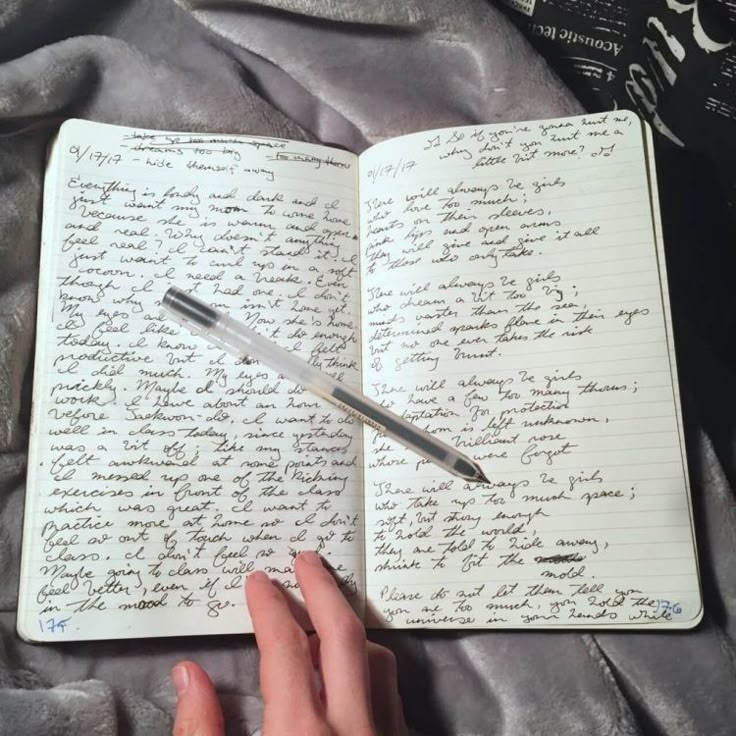 - take up too much space
- dreams too big
- too many thorns
9/17/17 - hide themselves away
Everything is lonely and dark and I
just want my mom to come home
because she is warm and open
and real. Why doesn't anything
feel real? I can't stand it. I
just want to curl up in a soft
cocoon. I need a break. Even
though I just had one. I don't
know why mom isn't home yet.
My eyes are Now she's home.
I feel like I didn't do enough
today. I know I felt
productive but I don't really think
I did much. My eyes all
prickly. Maybe I should do
work. I have about an hour
before Taekwon-do. I want to do
well in class today, since yesterday
was a bit off; like my stances
felt awkward at some points and
I messed up one of the kicking
exercises in front of the class
which was great. I want to
practice more at home so I don't
feel so out of touch when I go to
class. I don't feel so good.
Maybe going to class will make
feel better, even if I'm
in the mood to go.
175.
So if you're gonna hurt me,
why don't you hurt me a
little bit more?
9/17/17
There will always be girls
who love too much;
hearts on their sleeves,
pink lips and open arms
they will give and give it all
to those who only take.
There will always be girls
who dream a bit too big;
minds vaster than the sea,
determined sparks flare in their eyes
but no one ever takes the risk
of getting burnt.
There will always be girls
who have a few too many thorns;
adaptation for protection
thorn is left unknown,
she brilliant rose
whose were forgot
There will always be girls
who take up too much space;
soft, but strong enough
to hold the world,
they are told to hide away,
shrink to fit the
mold.
Please do not let them tell you
you are too much, you hold the
universe in your hands while
176
Acoustic
4